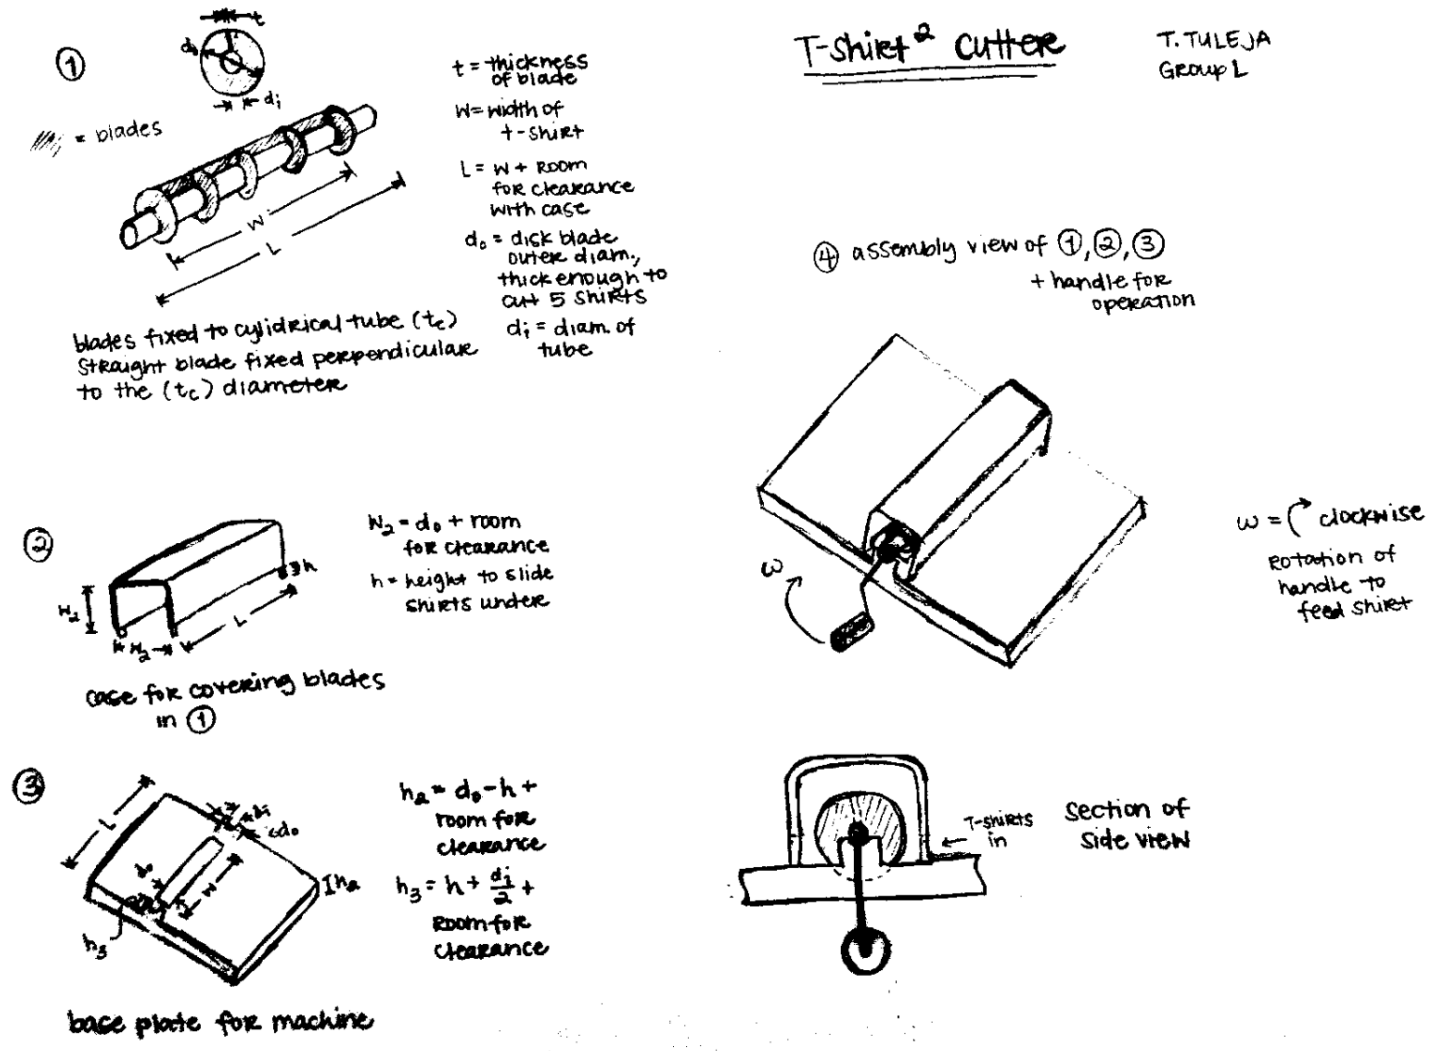 T-Shirt² Cutter
T. TULEJA
Group L
①
t
d₀
dᵢ
= blades
W
L
t = thickness
of blade
W = width of
t-shirt
L = W + Room
for clearance
with case
d₀ = disk blade
outer diam.,
thick enough to
cut 5 shirts
dᵢ = diam. of
tube
blades fixed to cylidrical tube (t꜀)
straight blade fixed perpendicular
to the (t꜀) diameter
②
W₂
W₂
L
h
W₂ = d₀ + room
for clearance
h = height to slide
shirts under
case for covering blades
in ①
③
L
dᵢ
d₀
h₂
h₃
h₂ = d₀ - h +
room for
clearance
h₃ = h + dᵢ/2 +
Room for
clearance
base plate for machine
④ assembly view of ①, ②, ③
+ handle for
operation
ω
ω = clockwise
Rotation of
handle to
feed shirt
T-shirts
in
Section of
side view